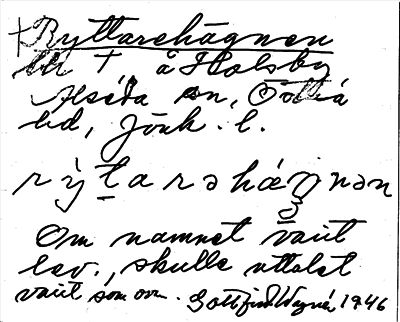 † Ryttarehägnen
† å Holsby
Alséda sn, Östra
hd, Jönk. l.
rỳtarəhägnən
Om namnet varit
lev., skulle uttalet
varit som ovan. Gottfrid Wagnér 1946